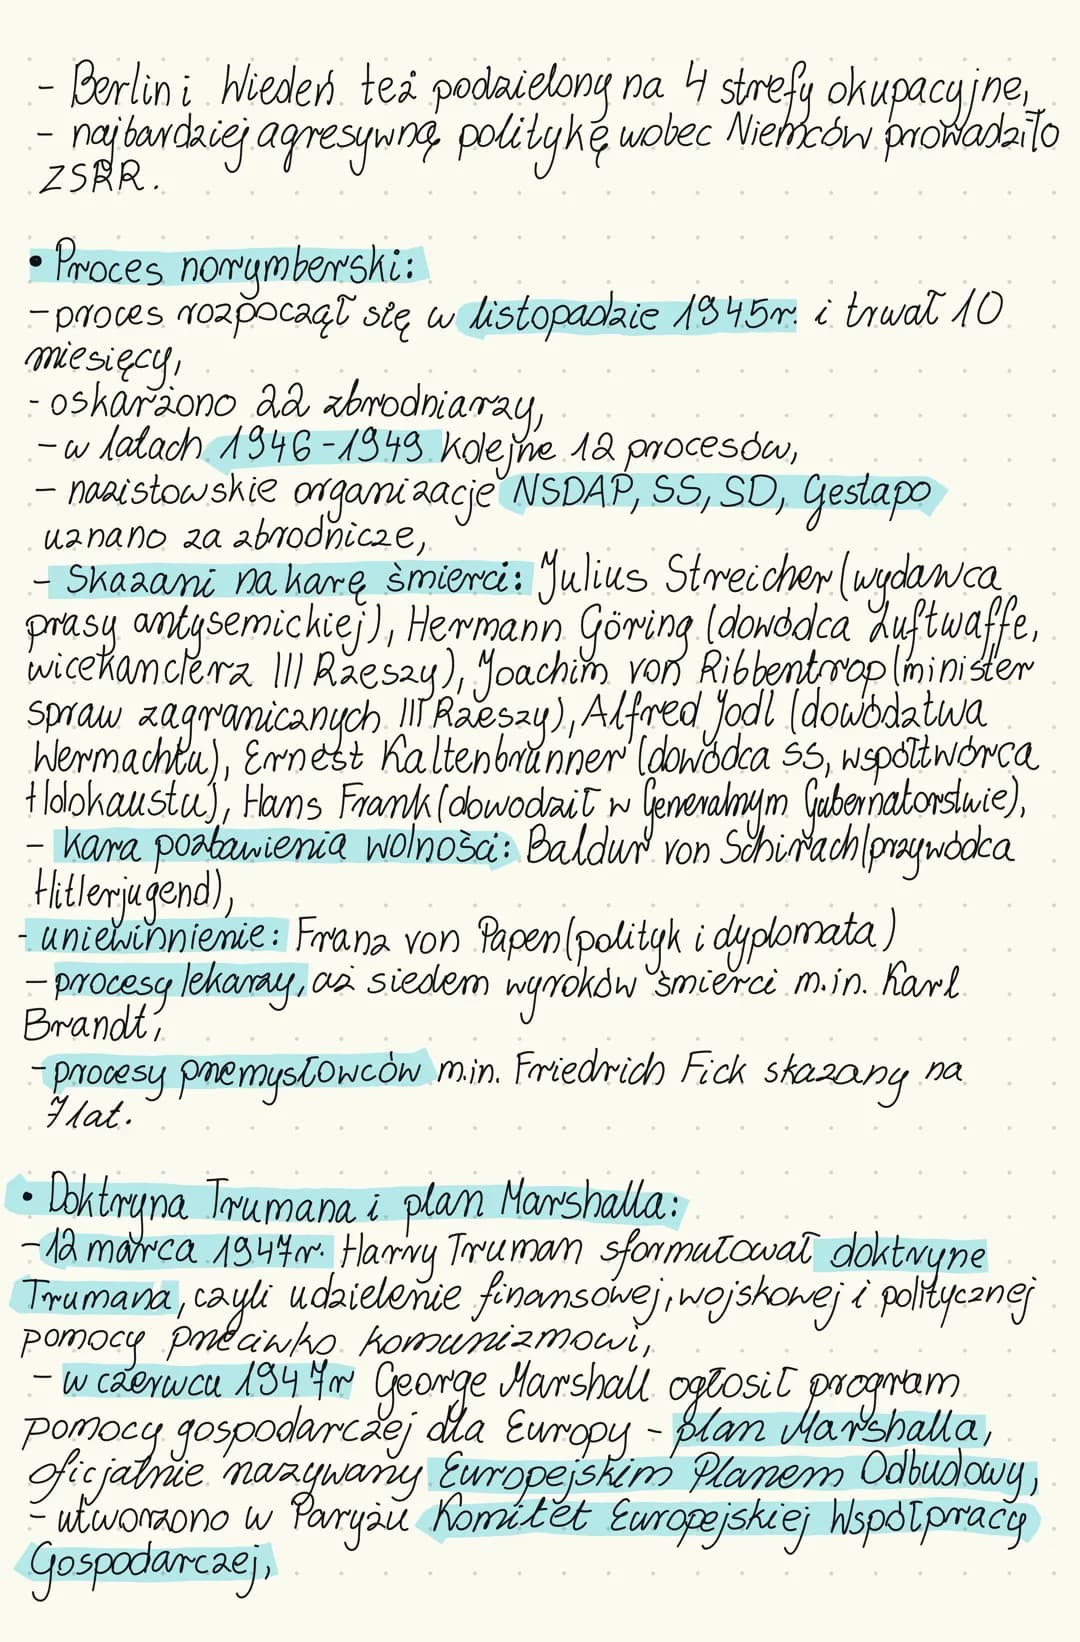 - Berlin i Wiedeń też podzielony na 4 strefy okupacyjne,
- najbardziej agresywną politykę wobec Niemców prowadziło
ZSRR.
• Proces norymberski:
- proces rozpoczął się w listopadzie 1945r. i trwał 10
miesięcy,
- oskarżono 22 zbrodniarzy,
- w latach 1946-1949 kolejne 12 procesów,
- nazistowskie organizacje NSDAP, SS, SD, Gestapo
uznano za zbrodnicze,
- Skazani na karę śmierci: Julius Streicher (wydawca
prasy antysemickiej), Hermann Göring (dowódca Luftwaffe,
wicekanclerz III Rzeszy), Joachim von Ribbentrop (minister
spraw zagranicznych III Rzeszy), Alfred Jodl (dowództwa
Wermachtu), Ernest Kaltenbrunner (dowódca SS, współtwórca
Holokaustu), Hans Frank (dowodził w Generalnym Gubernatorstwie),
- kara pozbawienia wolności: Baldur von Schirach (przywódca
Hitlerjugend),
- uniewinnienie: Franz von Papen (polityk i dyplomata)
- procesy lekarzy, aż siedem wyroków śmierci m.in. Karl
Brandt,
- procesy przemysłowców m.in. Friedrich Fick skazany na
7 lat.
• Doktryna Trumana i plan Marshalla:
- 12 marca 1947r. Harry Truman sformułował doktrynę
Trumana, czyli udzielenie finansowej, wojskowej i politycznej
pomocy przeciwko komunizmowi,
- w czerwcu 1947r George Marshall ogłosił program
pomocy gospodarczej dla Europy - plan Marshalla,
oficjalnie nazywany Europejskim Planem Odbudowy,
- utworzono w Paryżu Komitet Europejskiej Współpracy
Gospodarczej,